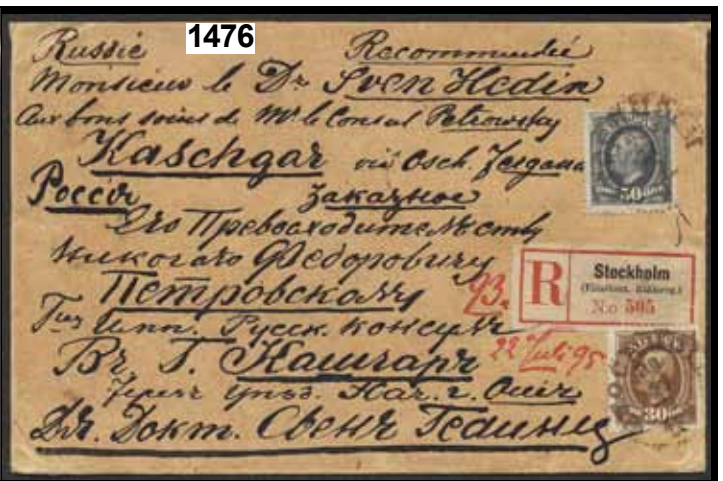 1476
Russie Recommandée
Monsieur le Dr Sven Hedin
Aux bons soins de Mr le Consul Petrowsky
Kaschgar viâ Osch. Fergana
Россія Заказное
Его Превосходительству
Николаю Федоровичу
Петровскому
Ген Имп. Русск. Консулъ
Въ Г. Кашгаръ
Черезъ г. Ошъ
Для Докт. Свенъ Гедина
50
R
Stockholm
No 595
93.
22 Juli 95
30